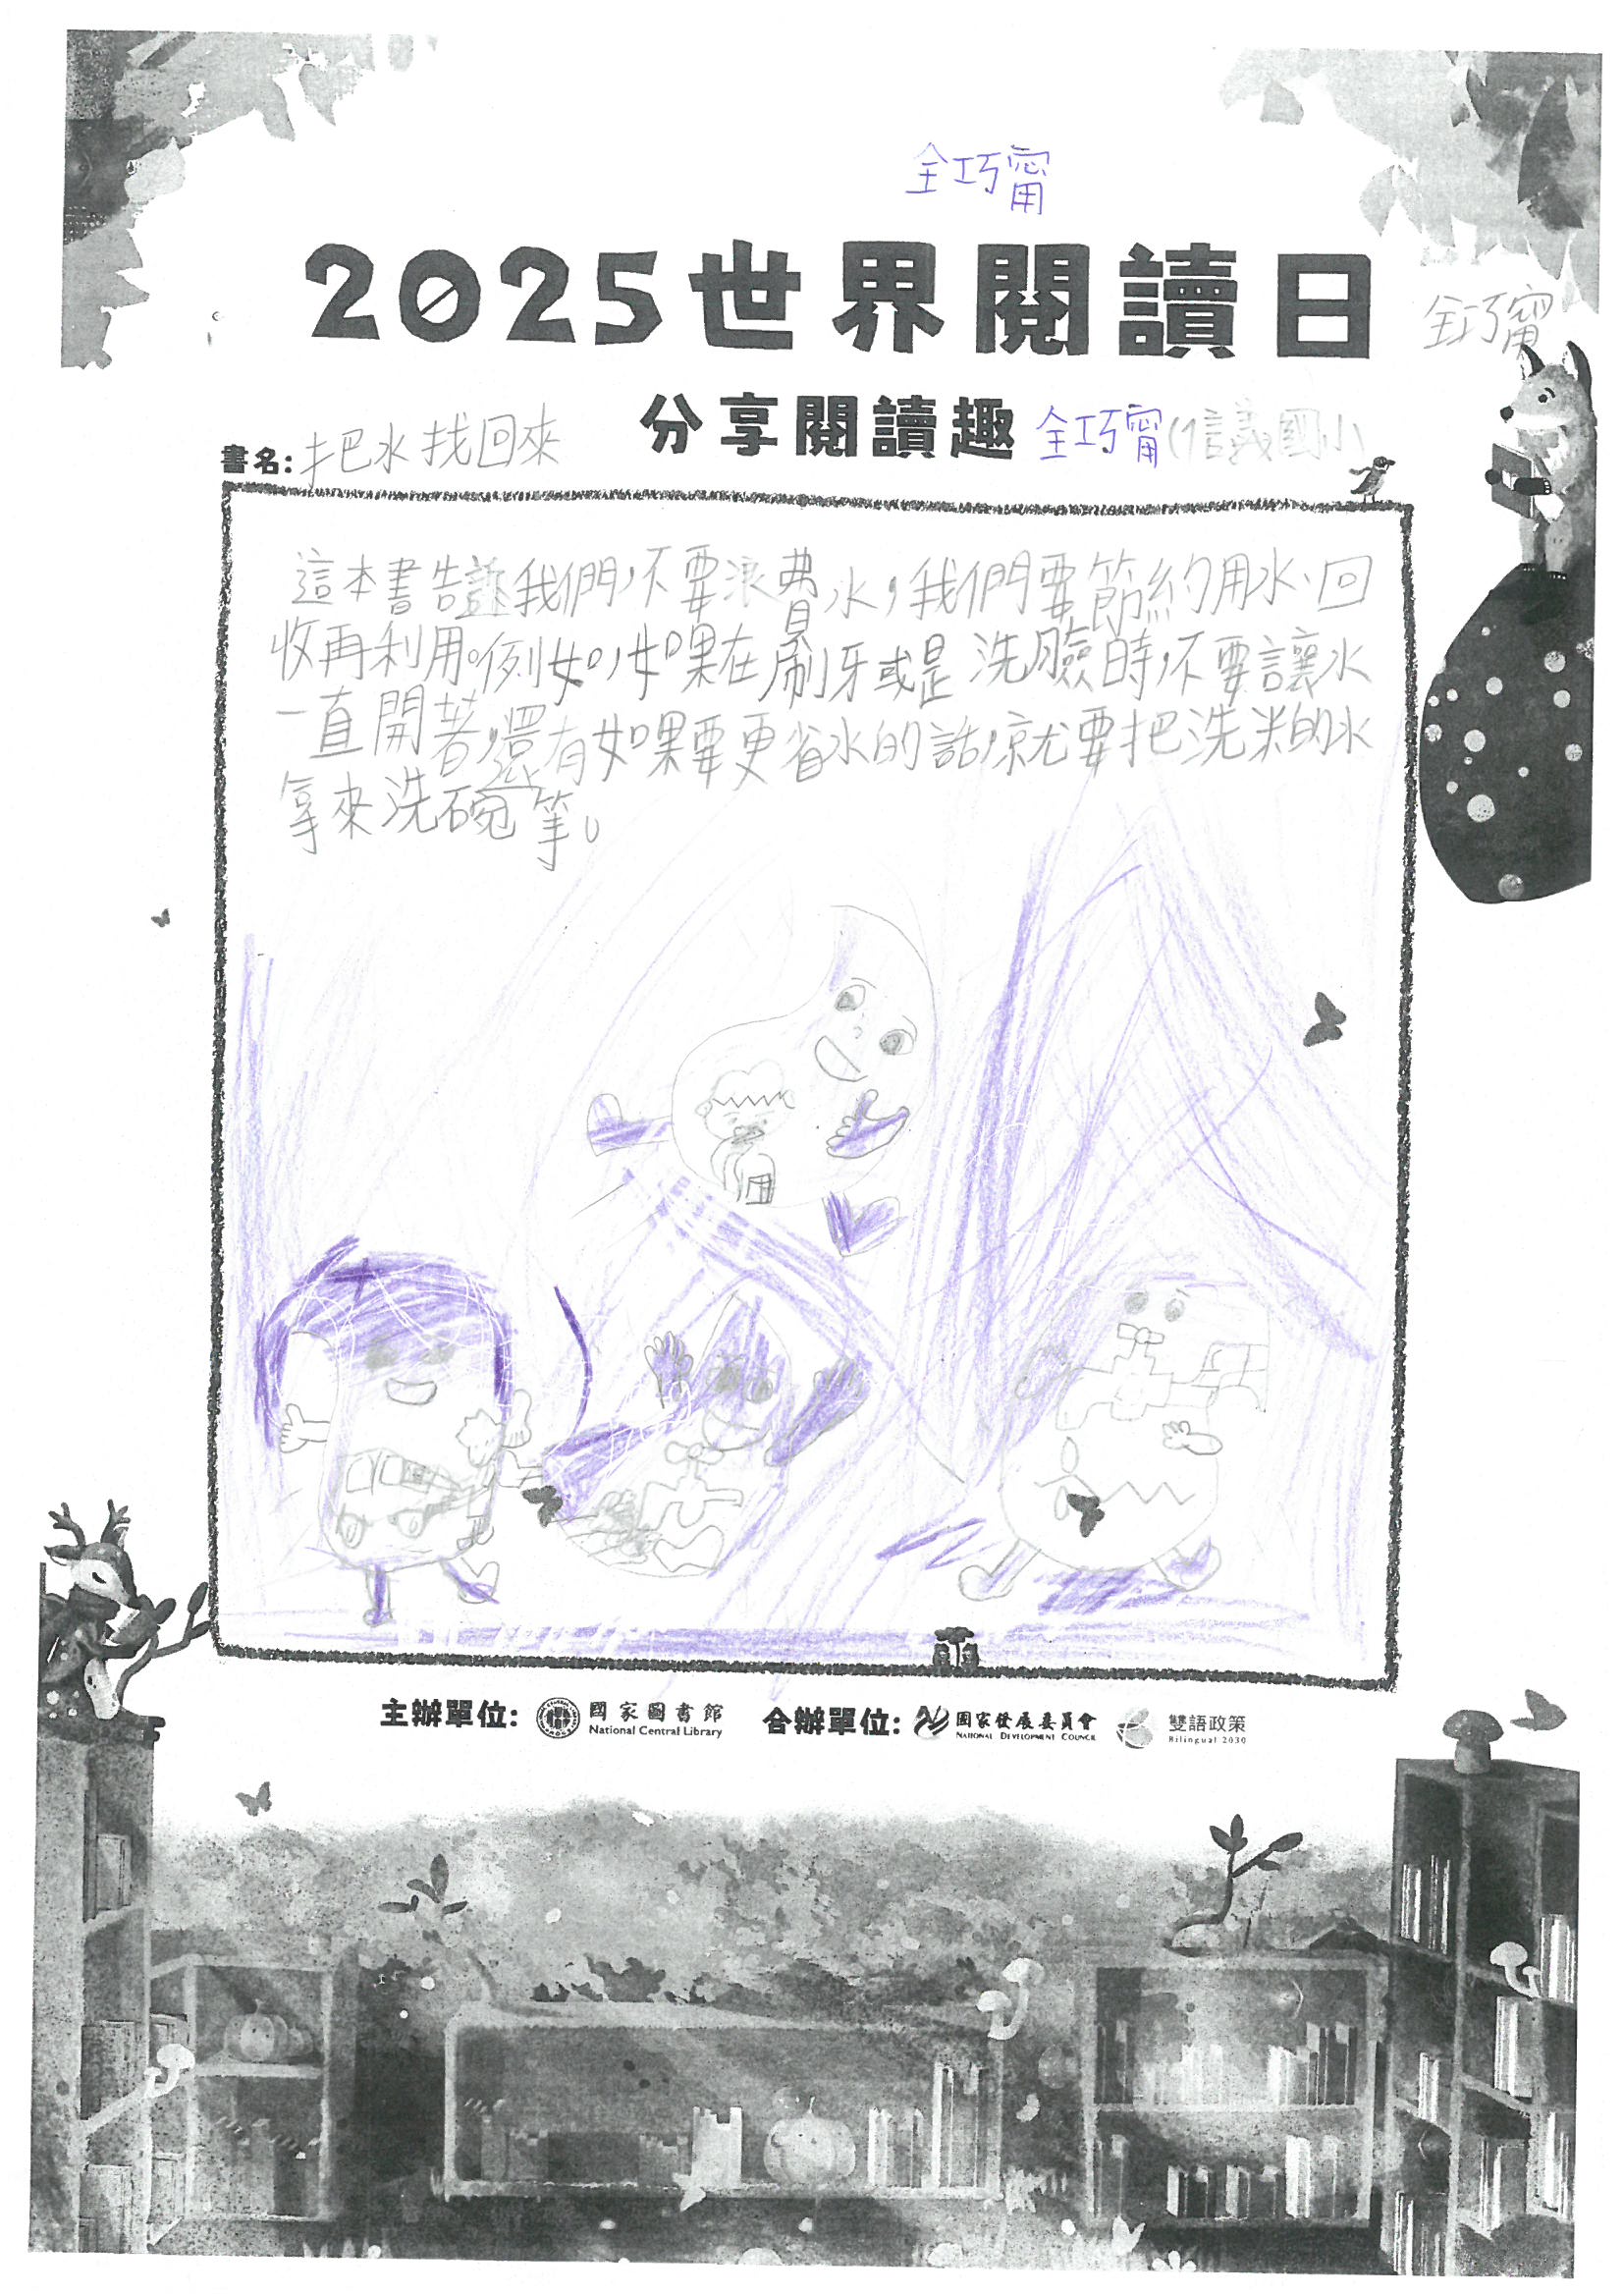 全巧甯
2025世界閱讀日
全巧甯
分享閱讀趣 全巧甯(信義國小)
書名: 把水找回來
這本書告訴我們,不要浪費水,我們要節約用水、回
收再利用。例如,如果在刷牙或是洗臉時,不要讓水
一直開著,還有如果要更省水的話,就要把洗米的水
拿來洗碗筆。
主辦單位: 國家圖書館 National Central Library 合辦單位: 國家發展委員會 NATIONAL DEVELOPMENT COUNCIL 雙語政策 Bilingual 2030